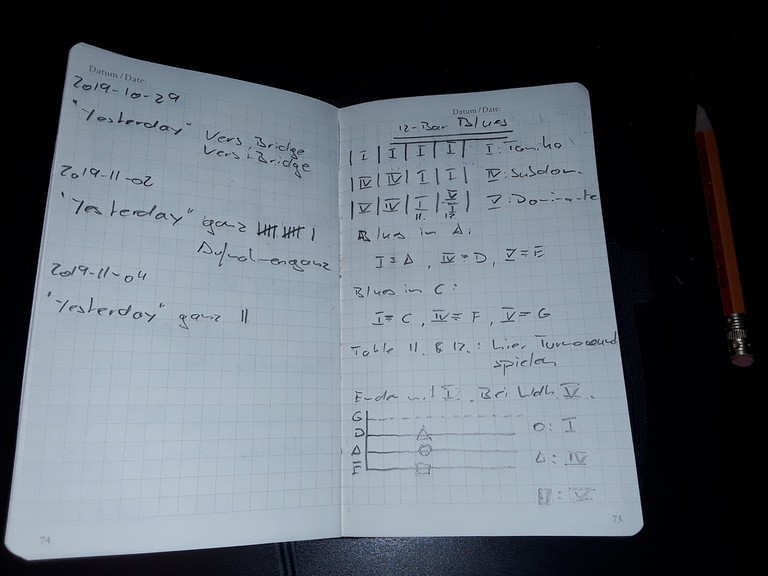 Datum / Date:
2019-10-29
"Yesterday" Vers, Bridge
Vers + Bridge
2019-11-02
"Yesterday" ganz 𝍸 𝍸 |
2019-11-04
"Yesterday" ganz ||
74
Datum / Date:
12-Bar Blues
| I | I | I | I | I: Tonika
| IV | IV | I | I | IV: Subdom.
| V | IV | I | V I | V: Dominante
11. 12.
Blues in A:
I = A, IV = D, V = E
Blues in C:
I = C, IV = F, V = G
Takte 11. & 12.: hier Turnaround
spielen
Ende mit I. Bei Wdh. V.
G
D
A
E
○: I
△: IV
□: V
75